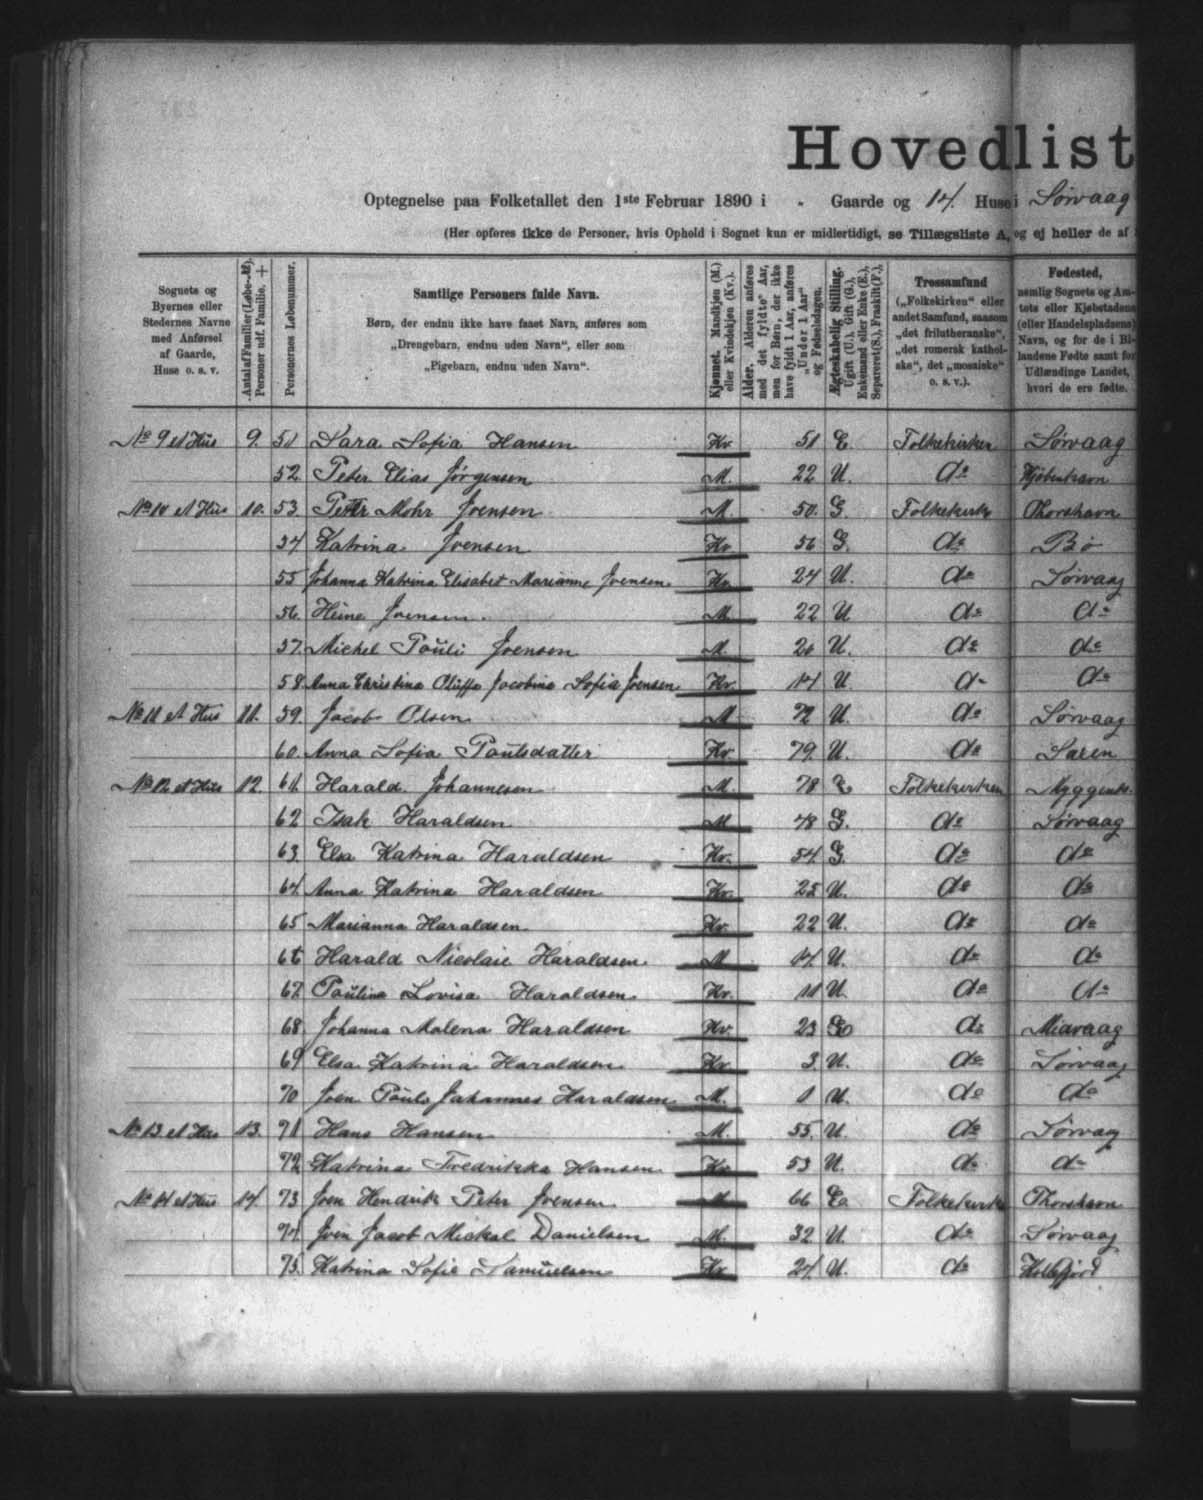 Hovedlist
Optegnelse paa Folketallet den 1ste Februar 1890 i - Gaarde og 14. Huse i Sørvaag
(Her opføres ikke de Personer, hvis Ophold i Sognet kun er midlertidigt, se Tillægsliste A, og ej heller de af
Sognets og Byernes eller Stedernes Navne med Anførsel af Gaarde, Huse o. s. v.
Antal af Familier (Løbe-№). Personer udf. Familie. +
Personernes Løbenummer.
Samtlige Personers fulde Navn.
Børn, der endnu ikke have faaet Navn, anføres som
„Drengebarn, endnu uden Navn“, eller som
„Pigebarn, endnu uden Navn“.
Kjønnet. Mandkjøn (M.) eller Kvindekjøn (Kv.).
Alder. Alderen anføres med det fyldte Aar, men for Børn, der ikke have fyldt 1 Aar, anføres „Under 1 Aar“ og Fødselsdagen.
Ægteskabelig Stilling. Ugift (U.), Gift (G.), Enkemand eller Enke (E.), Separeret (S.), Fraskilt (F.).
Trossamfund („Folkekirken“ eller andet Samfund, saasom „det frilutheranske“, „det romersk katholske“, det „mosaiske“ o. s. v.).
Fødested, nemlig Sognets og Amtets eller Kjøbstadens (eller Handelspladsens) Navn, og for de i Bilandene Fødte samt for Udlændinge Landet, hvori de ere fødte.
№ 9 et Hus 9. 51 Sara Sofia Hansen Kv. 51 E. Folkekirken Sørvaag
52 Peter Elias Jørgensen M. 22 U. do Kjøbenhavn
№ 10 et Hus 10. 53. Petr Mohr Joensen M. 50. G. Folkekirk Thorshavn
54 Katrina Joensen Kv 56 G. do Bø
55 Johanna Katrina Elisabet Marianne Joensen Kv. 24 U. do Sørvaag
56. Heine Joensen. M. 22 U do do
57. Michel Pauli Joensen M. 20 U. do do
58. Anna Christina Oluffe Jacobine Sofia Joensen Kv. 14 U. do do
№ 11 et Hus 11. 59. Jacob Olsen M 72 U. do Sørvaag
60. Anna Sofia Poulsdatter Kv. 79. U. do
№ 12 et Hus 12. 61. Harald Johannesen M. 78 E Folkekirken
62 Isak Haraldsen M. 48 G. do Sørvaag
63. Elsa Katrina Haraldsen Kv. 54 G. do do
64. Anna Katrina Haraldsen Kv. 25 U. do do
65 Marianna Haraldsen Kv. 22 U. do do
66 Harald Nicolaie Haraldsen M 14. U. do do
67. Paulina Lovisa Haraldsen Kv. 11 U. do do
68. Johanna Malena Haraldsen Kv. 23 do Midvaag
69 Elsa Katrina Haraldsen Kv. 3. U. do Sørvaag
70 Joen Poul Johannes Haraldsen M. 1 U. do do
№ 13 et Hus 13. 71 Hans Hansen M. 55. U. do Sørvaag
72 Katrina Fredrikka Hansen Kv. 53 U. do do
№ 14 et Hus 14. 73 Joen Hendrik Peter Joensen M 66 E. Folkekirke Thorshavn
74. Joen Jacob Mickal Danielsen M. 32 U. do Sørvaag
75. Katrina Sofie Samuelsen Kv. 24. U. do Kollefjord